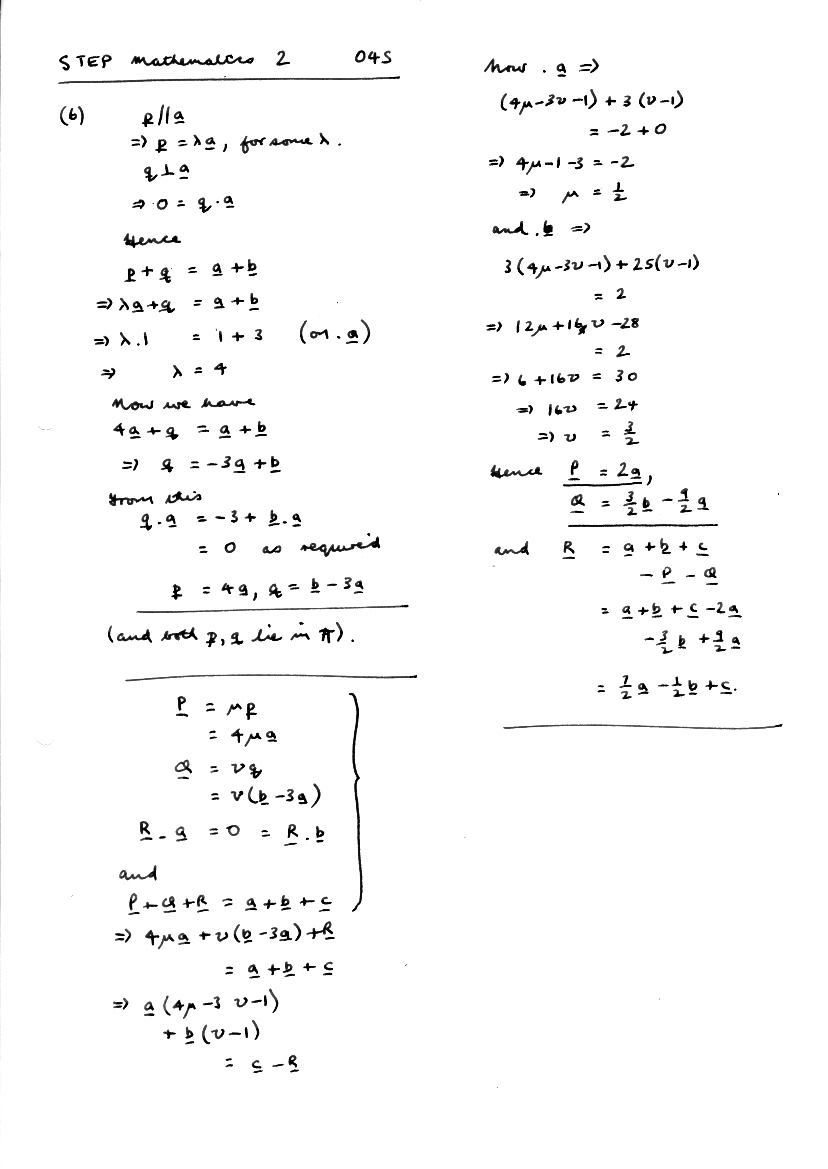 STEP Mathematics 2 04S
(6) p//a
=> p = λa, for some λ.
q⊥a
=> 0 = q.a
Hence
p + q = a + b
=> λa + q = a + b
=> λ.1 = 1 + 3 (on . a)
=> λ = 4
Now we have
4a + q = a + b
=> q = -3a + b
From this
q.a = -3 + b.a
= 0 as required
p = 4a, q = b - 3a
(and both p, q lie in π).
P = μp
= 4μa
Q = νq
= ν(b - 3a)
R.a = 0 = R.b
and
P + Q + R = a + b + c
=> 4μa + ν(b - 3a) + R
= a + b + c
=> a(4μ - 3ν - 1)
+ b(ν - 1)
= c - R
Now . a =>
(4μ - 3ν - 1) + 3(ν - 1)
= -2 + 0
=> 4μ - 1 - 3 = -2
=> μ = 1/2
and . b =>
3(4μ - 3ν - 1) + 25(ν - 1)
= 2
=> 12μ + 16ν - 28
= 2
=> 6 + 16ν = 30
=> 16ν = 24
=> ν = 3/2
Hence P = 2a,
Q = 3/2 b - 9/2 a
and R = a + b + c
- P - Q
= a + b + c - 2a
- 3/2 b + 9/2 a
= 7/2 a - 1/2 b + c.